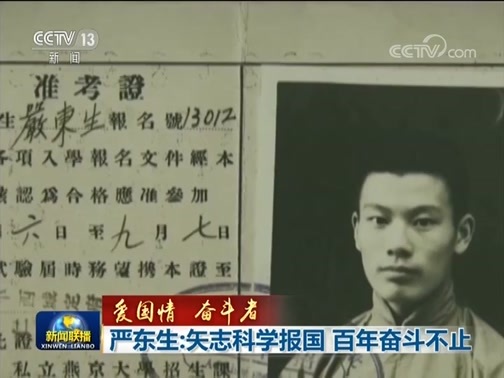 CCTV 13
新闻
CCTV.com
准考證
生嚴東生報名號13012
各項入學報名文件經本
核認爲合格應准參加
月六日至九月七日
試驗屆時務望携本證至
此證
私立燕京大學招生課
爱国情 奋斗者
新闻联播
XINWEN LIANBO
严东生:矢志科学报国 百年奋斗不止